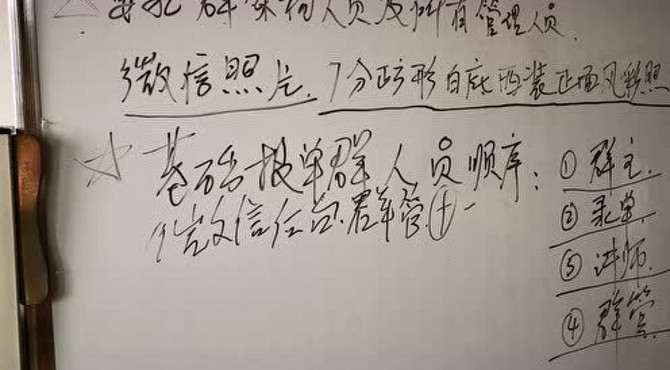 群架构人员及所有管理人员.
微信照片. 7分正方形白底西装正面风彩照
☆ 基础报单群人员顺序: ① 群主.
微信任总群管①一 ② 录单.
③ 讲师.
④ 群管